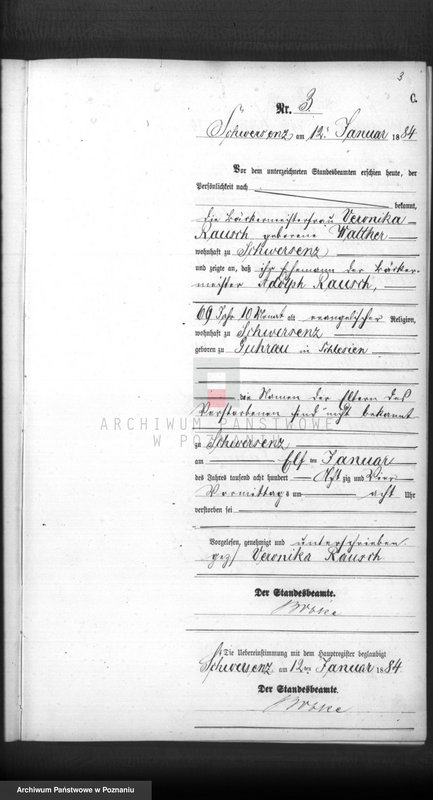 3
C.
Nr. 3.
Schwersenz am 12. Januar 1884
Vor dem unterzeichneten Standesbeamten erschien heute, der
Persönlichkeit nach
bekannt,
die Bäckermeisterfrau Veronika
Rausch geborene Walther
wohnhaft zu Schwersenz
und zeigte an, daß ihr Ehemann der Bäcker-
meister Adolph Rausch,
69 Jahr 10 Monat alt evangelischer Religion,
wohnhaft zu Schwersenz
geboren zu Guhrau in Schlesien
die Namen der Eltern des
Verstorbenen sind nicht bekannt
ARCHIWUM PAŃSTWOWE
W POZNANIU
zu Schwersenz
am Elf ten Januar
des Jahres tausend acht hundert Acht zig und Vier
Vormittags um acht Uhr
verstorben sei
Vorgelesen, genehmigt und unterschrieben.
gez/ Veronika Rausch
Der Standesbeamte.
Die Uebereinstimmung mit dem Hauptregister beglaubigt
Schwersenz am 12ten Januar 1884
Der Standesbeamte.
Archiwum Panstwowe w Poznaniu